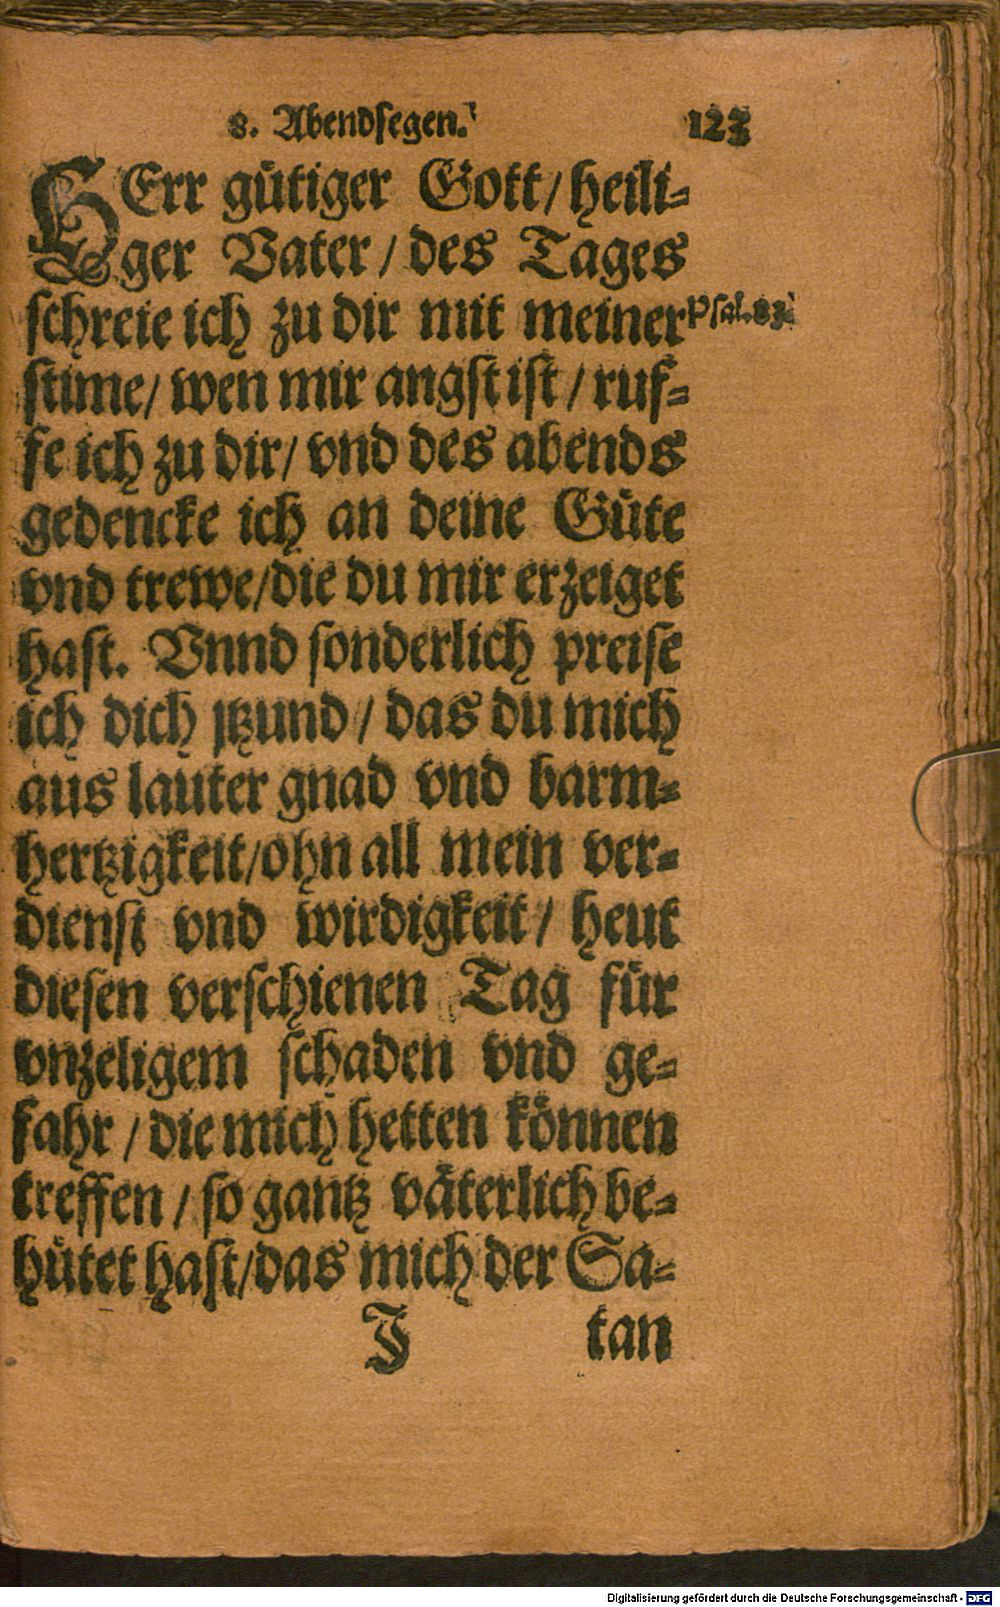 8. Abendsegen. 123
HErr gütiger Gott/ heili-
ger Vater / des Tages
schreie ich zu dir mit meiner Psal. 83.
stim̃e/ wen mir angst ist / ruf-
fe ich zu dir/ vnd des abends
gedencke ich an deine Güte
vnd trewe/die du mir erzeiget
hast. Vnnd sonderlich preise
ich dich jtzund / das du mich
aus lauter gnad vnd barm-
hertzigkeit/ohn all mein ver-
dienst vnd wirdigkeit / heut
diesen verschienen Tag für
vnzeligem schaden vnd ge-
fahr / die mich hetten können
treffen / so gantz väterlich be-
hütet hast/das mich der Sa-
J tan
Digitalisierung gefördert durch die Deutsche Forschungsgemeinschaft - DFG